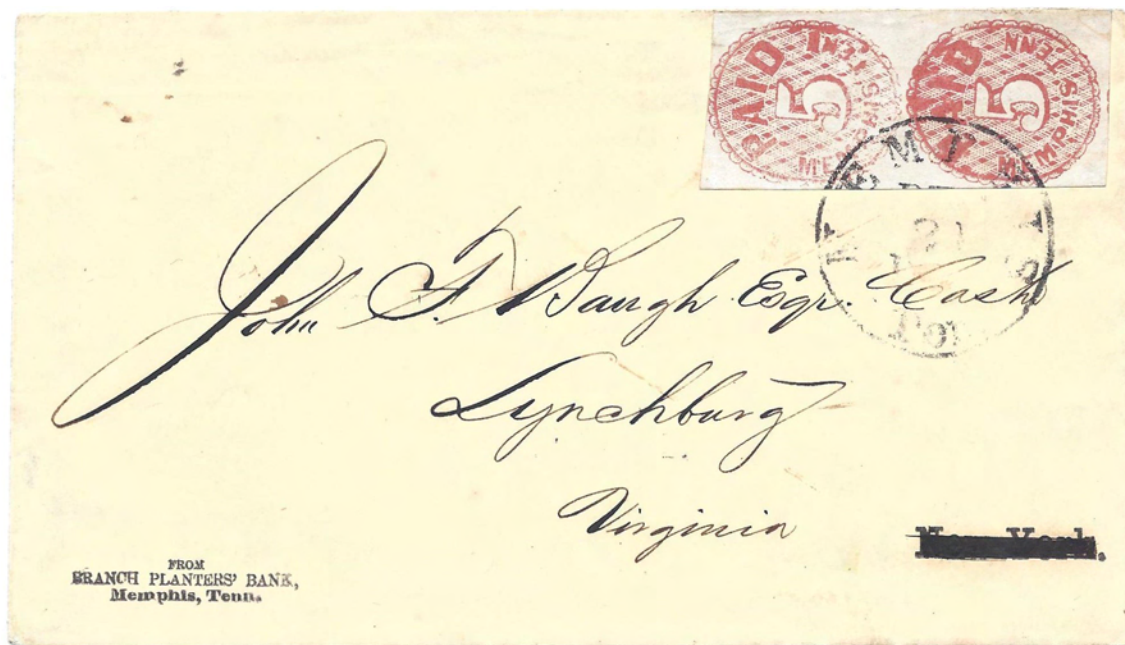 PAID 5 MEMPHIS, TENN.
PAID 5 MEMPHIS, TENN.
MEMPHIS
21
John F. Waugh Esqr. Cash
Lynchburg
Virginia
New York.
FROM
BRANCH PLANTERS' BANK,
Memphis, Tenn.